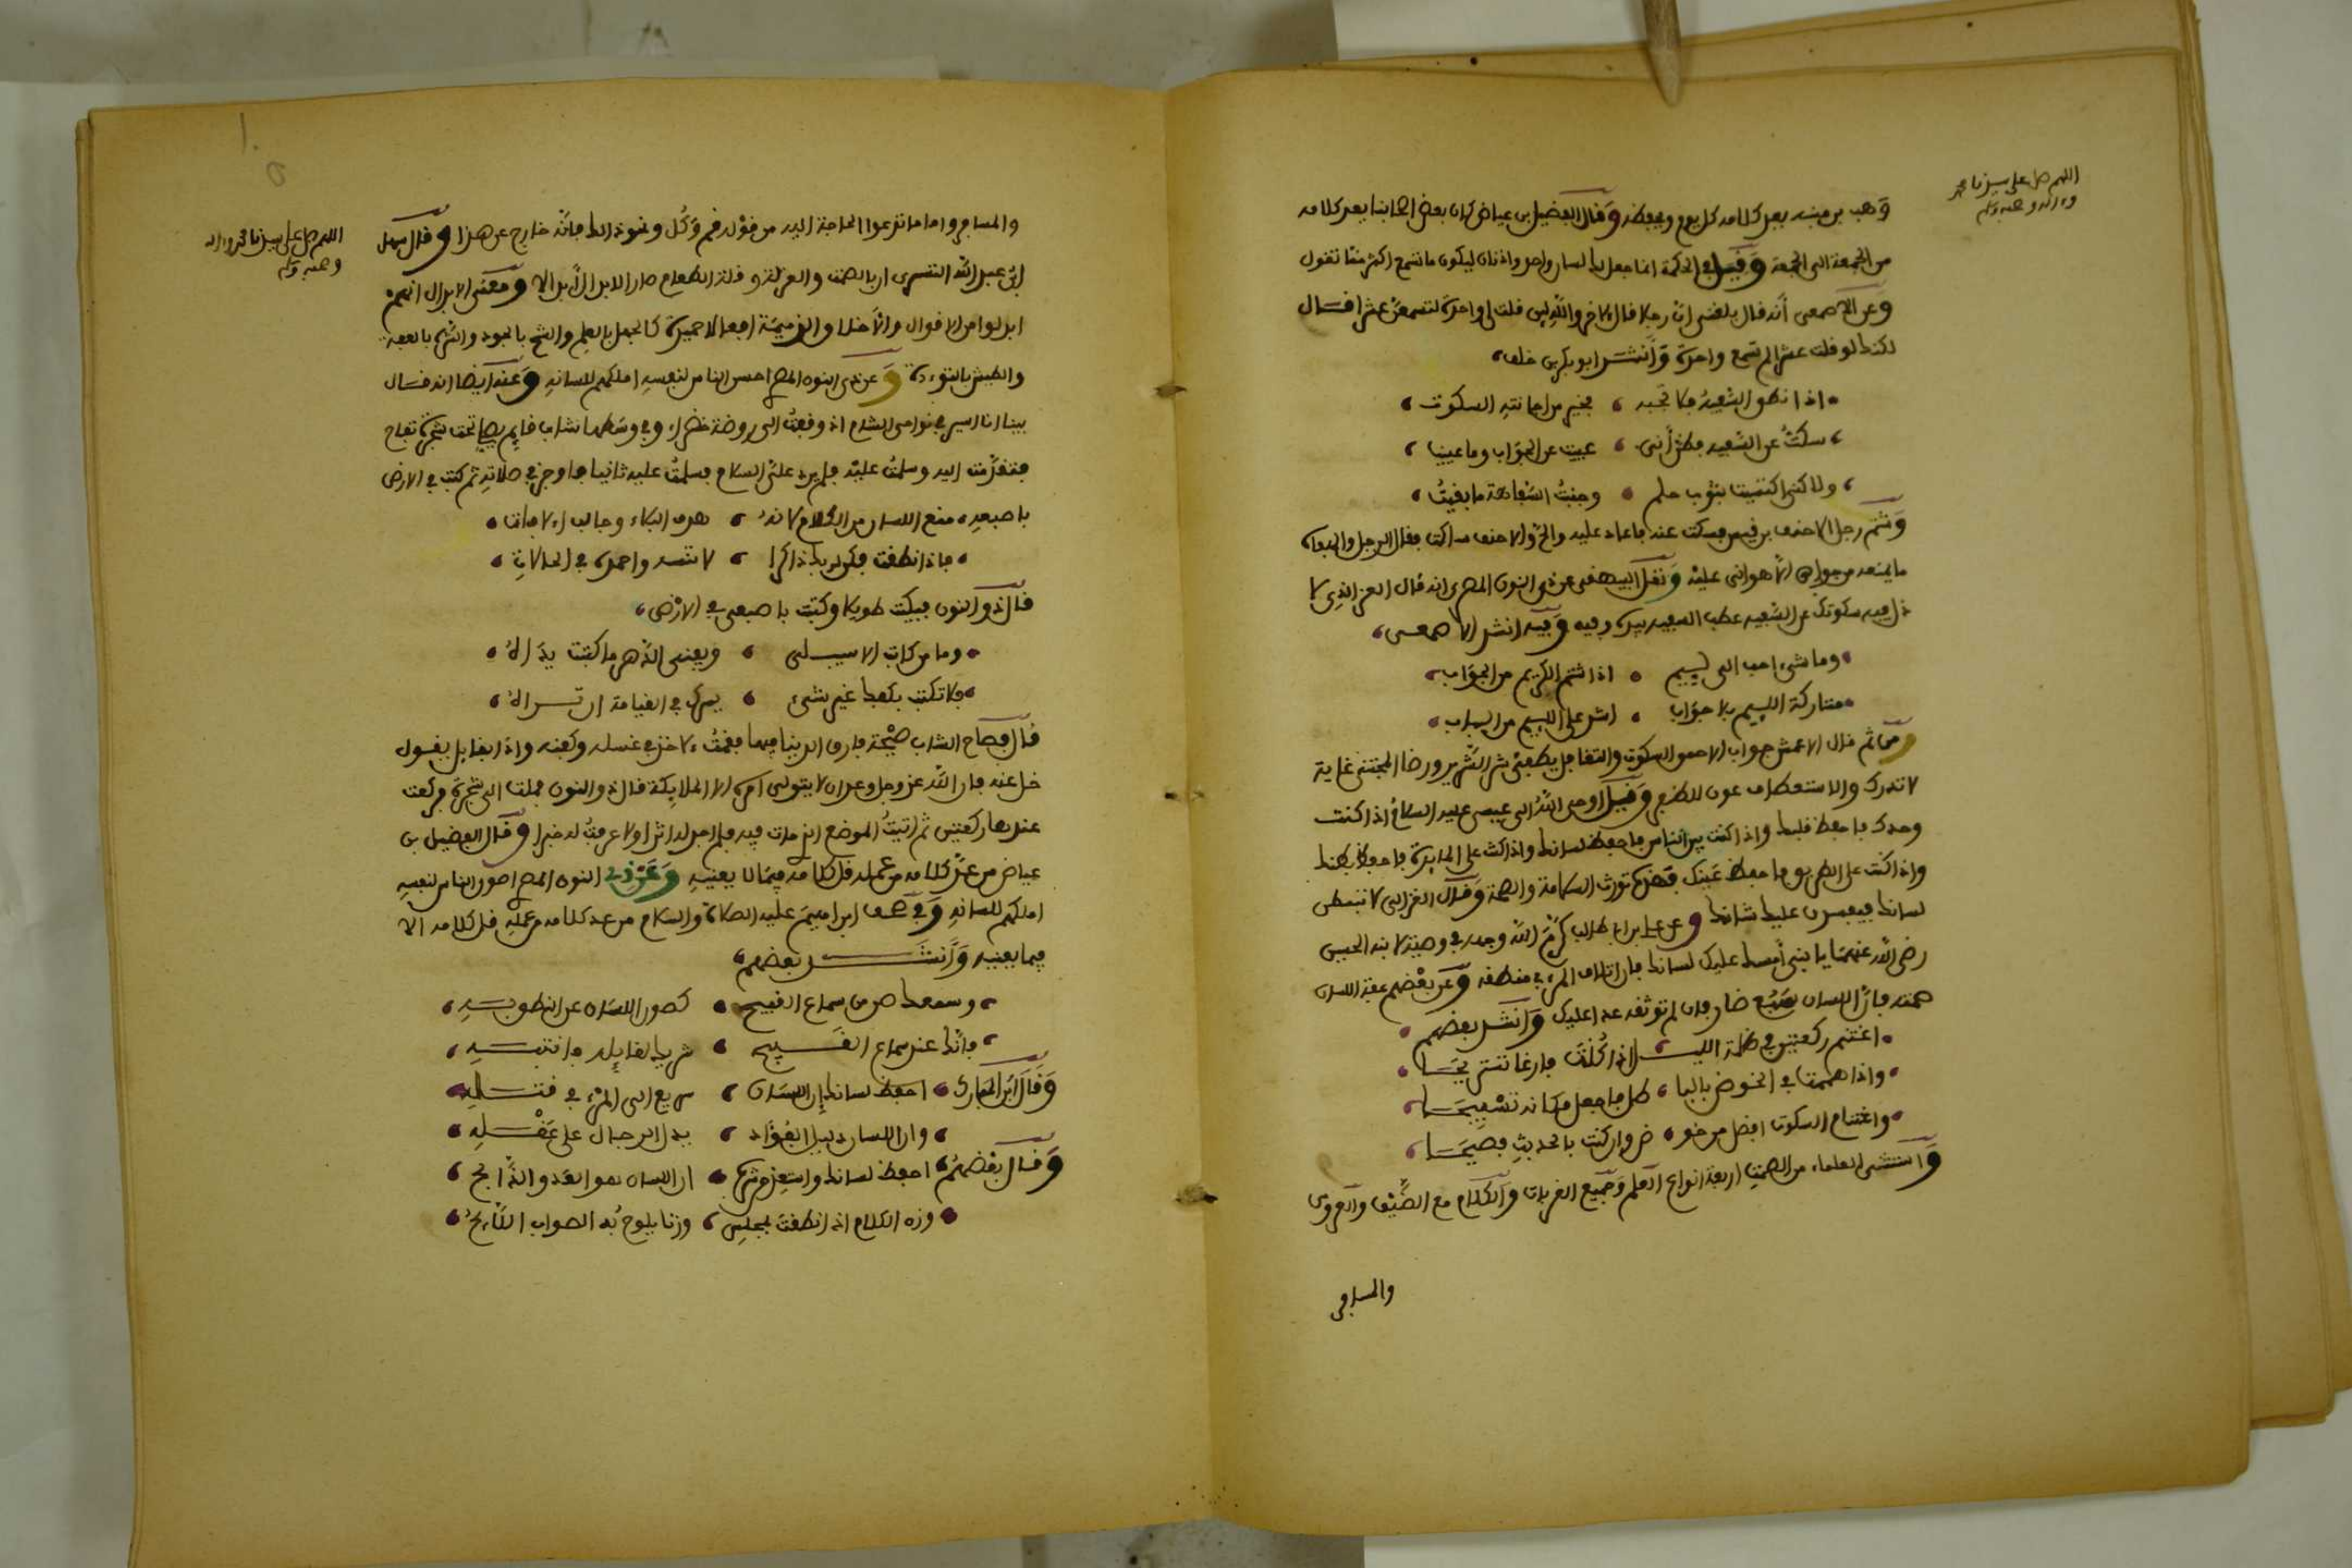 اللهم صل على سيدنا محمد
وءاله وصحبه وسلم
وهب بن منبه يعد كلامه كل يوم ويحفظه وقال الفضيل بن عياض كان بعض اصحابنا يعد كلامه
من الجمعة الى الجمعة وقيل في الحكمة انما جعل لك لسان واحد واذنان ليكون ما تسمع اكثر مما تقول
وعن الاصمعي أنه قال بلغني ان رجلا قال لاخر والله لين قلت لي واحدة لتسمعن عشرا فقال
لكنك لو قلت عشرا لم تسمع واحدة وأنشد ابو بكر بن خلف
اذا نطق السفيه فلا تجبه فخير من اجابته السكوت
سكتُ عن السفيه فظن أني عييت عن الجواب وما عييت
ولاكني اكتسيت بثوب حلم وجنبتُ السفاهة ما بقيتُ
وشتم رجل الاحنف بن قيس فسكت عنه فاعاد عليه والح والاحنف ساكت فقال الرجل والهفاه
ما يمنعه من جوابي الا هواني عليه ونقل البيهقي عن ذي النون المصري انه قال العز الذي لا
ذل فيه سكوتك عن السفيه عطب السفيه بيده وفيه وفيه انشد الاصمعي
وما شيء احب الى لييم اذا شتم الكريم من الجواب
متاركة اللييم بلا جواب اشد على اللييم من السباب
ومن ثم قال الاعمش جواب الاحمق السكوت والتغافل يطفئ شر الشرير ورضا المجتني غاية
لا تدرك والاستعطاف عون للظفر وقيل اوحى الله الى عيسى عليه السلام اذا كنت
وحدك فاحفظ قلبك واذا كنت بين الناس فاحفظ لسانك واذا كنت على المايدة فاحفظ بطنك
واذا كنت على الطريق فاحفظ عينك فهذه تورث السلامة والصحة وقال الغزالي لا تبسطن
لسانك فيفسد عليك شانك وعن علي بن ابي طالب كرم الله وجهه في وصيته لابنه الحسين
رضي الله عنهما يا بني أمسك عليك لسانك فان اتلاف المرء في منطقه وعن بعضهم عفة اللسان
صمته فان اللسان سبع ضار فان لم توثقه عدا عليك وانشد بعضهم
اغتنم ركعتين في ظلمة الليل اذا كنت فارغا تستريحا
واذا هممت في الخوض بالباطل فاجعل مكانه تسبيحا
واغتنام السكوت افضل من خوض وان كنت بالحديث فصيحا
واستثنى العلماء من الصمت اربعة انواع العلم وجميع القربات والكلام مع الضيف والعروس
والمسافر
اللهم صل على سيدنا محمد وءاله
وصحبه وسلم
والمسافر واما ما تدعوا الحاجة اليه من قوله قم وكُل ونحو ذلك فانه خارج عن هذا وقال سهل
ابن عبد الله التستري ان بالصمت والعزلة وقلة الطعام صار الابدال أبدالا ومعنى الابدال انهم
ابدلوا من الاقوال والأخلاق الذميمة افعالا حميدة كالجهل بالعلم والشح بالجود والشره بالعفة
والطيش بالتوءدة وعن ذي النون المصري احسن الناس لنفسه املكهم للسانه وعنه أيضا انه قال
بينا انا اسير في نواحي الشام اذ وقعت الى روضة خضراء وفي وسطها شاب قايم يصلي تحت شجرة تفاح
فتقدمت اليه وسلمتُ عليه فلم يرد علي السلام فسلمتُ عليه ثانيا فاوجز في صلاته ثم كتب في الارض
باصبعه منع اللسان من الكلام لانه هدف البلاء وجالب الافات
فاذا نطقت فكن لربك ذاكرا لا تنسه واحمده في الحالات
قال ذو النون فبكيت طويلا وكتبت باصبعي في الارض
وما من كاتب الا سيبلى ويفنى الدهر ما كتبت يداه
فلا تكتب بكفك غير شيء يسرك في القيامة ان تراه
قال فصاح الشاب صيحة فارق الدنيا فيها فقمتُ لاخذ في غسله وكفنه واذا بقايل يقول
خل عنه فان الله عز وجل وعده ان لا يتولى امره الا الملايكة قال ذو النون فملت الى شجرة فركعت
عندها ركعتين ثم اتيتُ الموضع الذي مات فيه فلم اجد له اثرا ولا عرفتُ له خبرا وقال الفضيل بن
عياض من عد كلامه من عمله قل كلامه فيما لا يعنيه وعن ذي النون المصري اصون الناس لنفسه
املكهم للسانه وفي صحف ابراهيم عليه الصلاة والسلام من عد كلامه من عمله قل كلامه الا
فيما يعنيه وأنشد بعضهم
وسمعك صن من سماع القبيح كصون اللسان عن النطق به
فانك عند سماع القبيح شريك لقايله فانتبه
وقال ابن المبارك احفظ لسانك ان اللسان سريع الى المرء في قتله
وان اللسان دليل الفؤاد يدل الرجال على عقله
وقال بعضهم احفظ لسانك واستعذ من شره ان اللسان هو العدو الذابح
وزن الكلام اذا نطقت بمجلس وزنا يلوح به الصواب اللائح